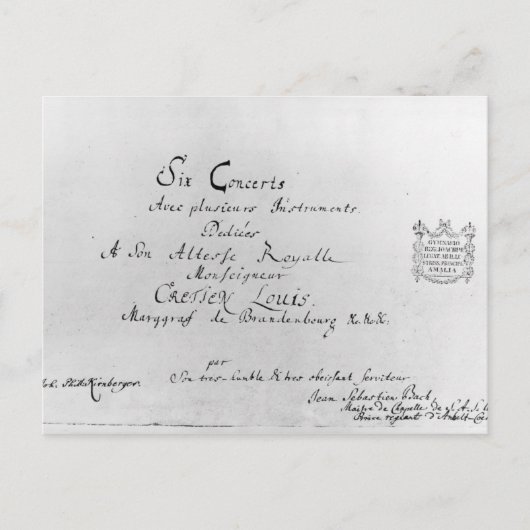 Six Concerts
Avec plusieurs Instruments.
Dediées
A Son Altesse Royalle
Monseigneur
CRETIEN LOUIS.
Marggraf de Brandenbourg &c.&c.&c:
par
Son tres-humble & tres obeissant serviteur
Jean Sebastien Bach,
Maitre de Chapelle de
Prince regnant d'Anhalt-Coe
Kirnberger.
GYMNASIO
REG. JOACHIMI
LEGAT. AB ILLU
STRISS. PRINCIPE
AMALIA